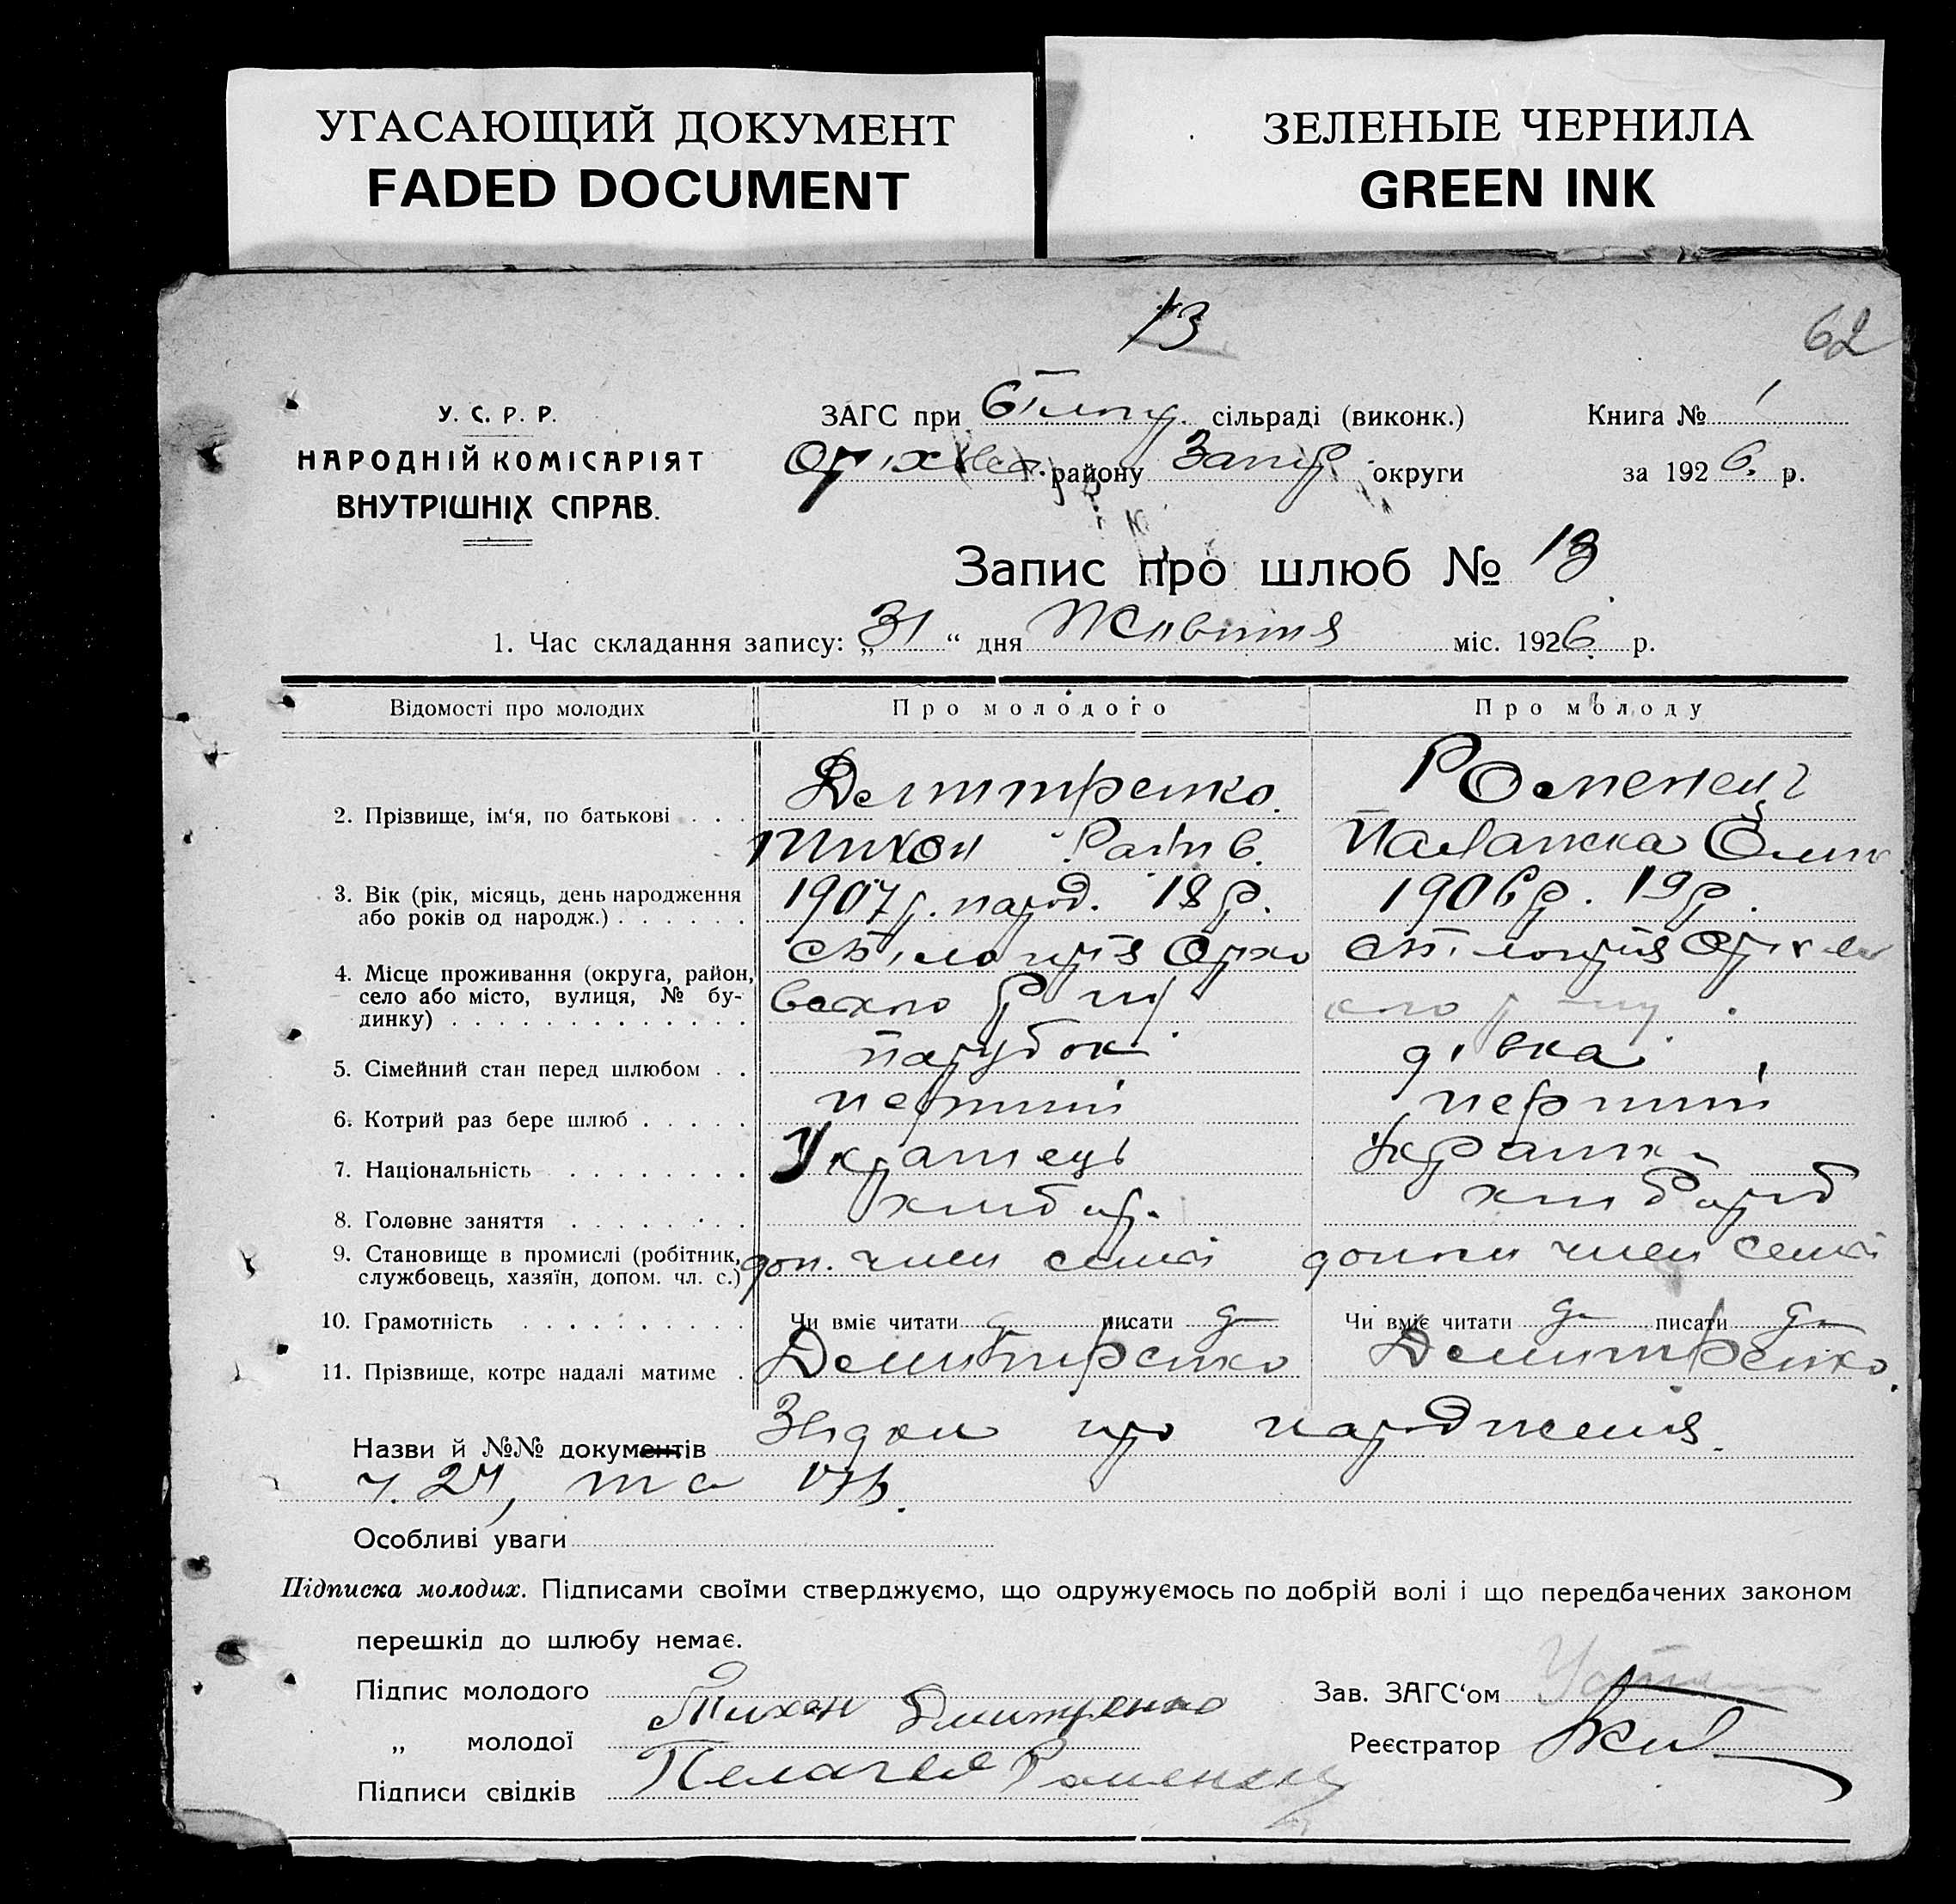 УГАСАЮЩИЙ ДОКУМЕНТ
FADED DOCUMENT
ЗЕЛЕНЫЕ ЧЕРНИЛА
GREEN INK
13
62
У. С. Р. Р.
НАРОДНІЙ КОМІСАРІЯТ
ВНУТРІШНІХ СПРАВ.
ЗАГС при сільраді (виконк.)
району Запор округи
Книга № 1
за 1926 р.
Запис про шлюб № 13
1. Час складання запису: „31“ дня Жовтня міс. 1926 р.
Відомості про молодих
Про молодого
Про молоду
2. Прізвище, ім'я, по батькові . . .
Дмитренко.
Тихон
Роменець
Палажка
3. Вік (рік, місяць, день народження
або років од народж.) . . . . . .
1907 р. народ. 18 р.
1906 р. 19 р.
4. Місце проживання (округа, район,
село або місто, вулиця, № бу-
динку) . . . . . . . . . . . . .
5. Сімейний стан перед шлюбом . .
парубок
дівка
6. Котрий раз бере шлюб . . . . .
перший
перший
7. Національність . . . . . . . .
Українець
Українка
8. Головне заняття . . . . . . . .
хлібор.
хлібороб
9. Становище в промислі (робітник,
службовець, хазяїн, допом. чл. с.)
доп. член семї
член семї
10. Грамотність . . . . . . . . . .
Чи вміє читати да писати да
Чи вміє читати да писати да
11. Прізвище, котре надалі матиме .
Дмитренко
Дмитренко.
Назви й №№ документів про народження.
ч. 27, та
Особливі уваги
Підписка молодих. Підписами своїми стверджуємо, що одружуємось по добрій волі і що передбачених законом
перешкід до шлюбу немає.
Підпис молодого
Тихон Дмитренко
„ молодої
Пелагея Роменець
Підписи свідків
Зав. ЗАГС'ом
Реєстратор